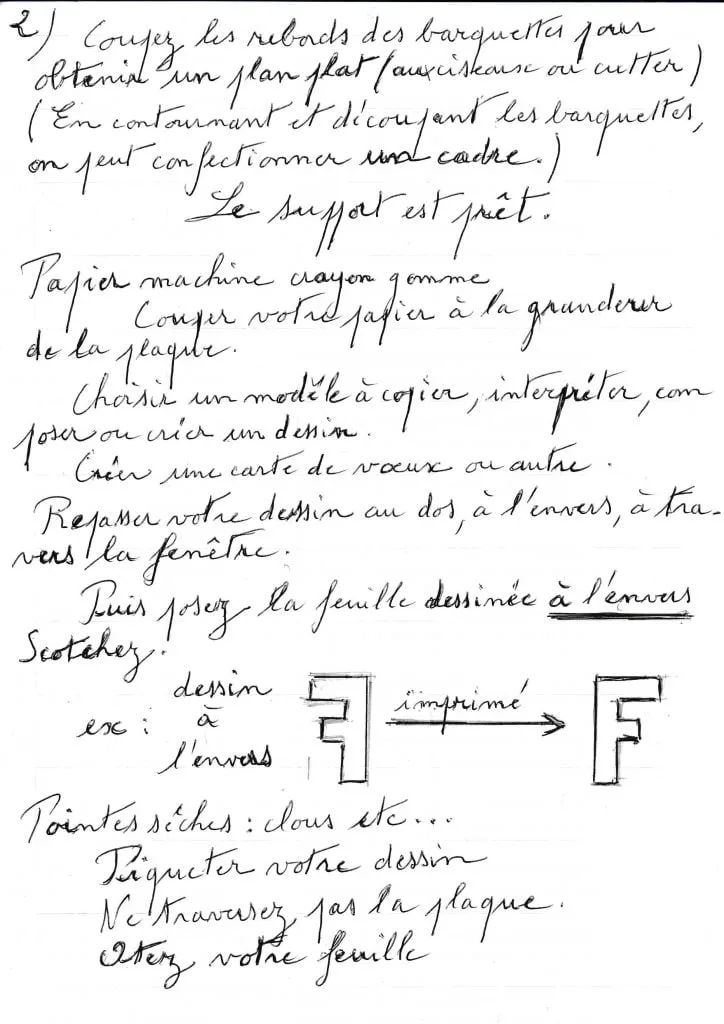 2) Coupez les rebords des barquettes pour
obtenir un plan plat (aux ciseaux ou cutter)
(En contournant et découpant les barquettes,
on peut confectionner un cadre.)
Le support est prêt.
Papier machine crayon gomme
Couper votre papier à la grandeur
de la plaque.
Choisir un modèle à copier, interpréter, com
poser ou créer un dessin.
Créer une carte de vœux ou autre.
Repasser votre dessin au dos, à l'envers, à tra-
vers la fenêtre.
Puis posez la feuille dessinée à l'envers
Scotchez.
dessin
ex : à
l'envers
F imprimé F
Pointes sêches : clous etc...
Piqueter votre dessin
Ne traversez pas la plaque.
Otez votre feuille